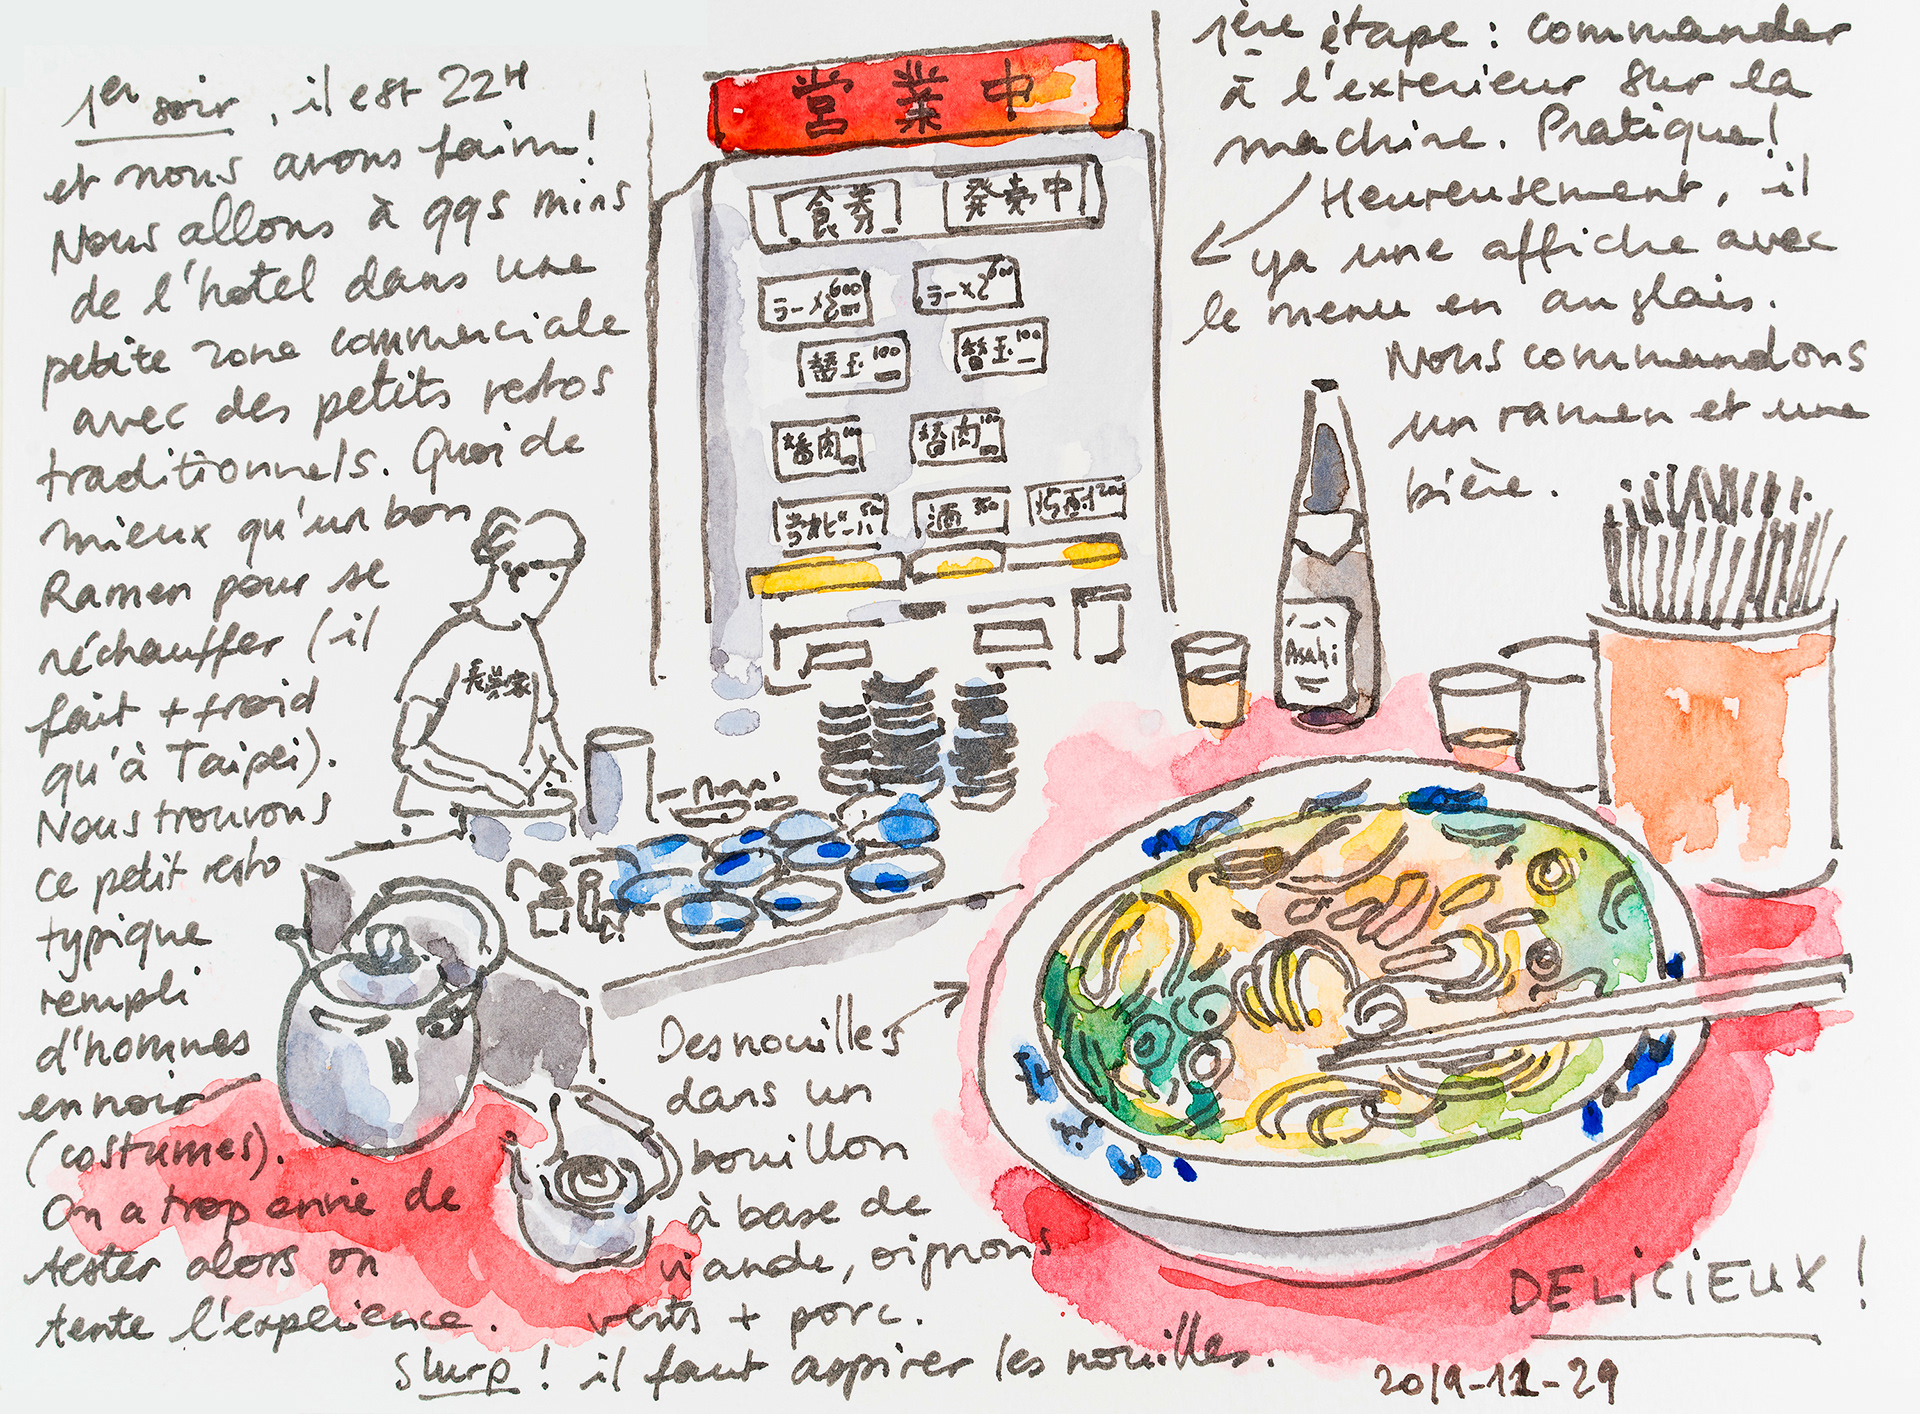 1er soir, il est 22H
et nous avons faim!
Nous allons à qqs mins
de l'hotel dans une
petite zone commerciale
avec des petits restos
traditionnels. Quoi de
mieux qu'un bon
Ramen pour se
réchauffer (il
fait + froid
qu'à Taipei).
Nous trouvons
ce petit resto
typique
rempli
d'hommes
en noir
(costumes).
On a trop envie de
tester alors on
tente l'expérience.
営業中
食券 発売中
ラーメン 600 ラーメン 600
替玉 100 替玉 100
替肉 100 替肉 100
ビール 酒
1ère étape : commander
à l'exterieur sur la
machine. Pratique!
Heureusement, il
ya une affiche avec
le menu en anglais.
Nous commandons
un ramen et une
bière.
Asahi
長浜家
Des nouilles
dans un
bouillon
à base de
viande, oignons
verts + porc.
Slurp! il faut aspirer les nouilles.
DELiCiEUX !
2019-11-29